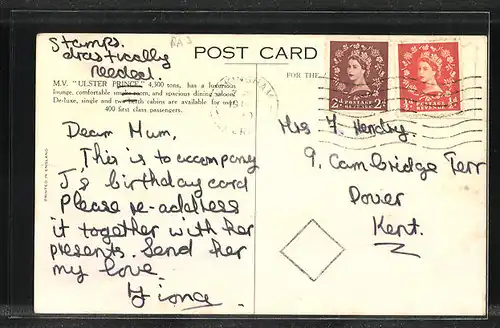 Stamps.
drastically
needed.
POST CARD
M.V. "ULSTER PRINCE" 4,300 tons, has a luxurious
lounge, comfortable smoke room, and spacious dining saloon.
De-luxe, single and two berth cabins are available for over
400 first class passengers.
FOR THE
PRINTED IN ENGLAND
Dear Mum,
This is to accompany
J's birthday card
Please re-address
it together with her
presents. Send her
my love.
Fiona
Mrs F. Hendry.
9, Cambridge Terr
Dover
Kent.
2D POSTAGE REVENUE 2D
½D POSTAGE REVENUE ½D